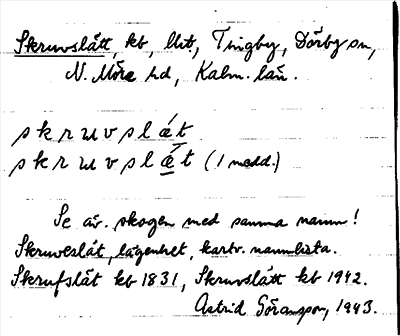 Skruvslått, kb, lht., Tingby, Dörby sn,
N. Möre hd, Kalm. län.
skruvslǽt
skruvslæ̀t (1 medd.)
Se äv. skogen med samma namn!
Skruveslåt, lägenhet, kartv. namnlista.
Skrufslåt kb 1831, Skruvslått kb 1942.
Astrid Göransson, 1943.